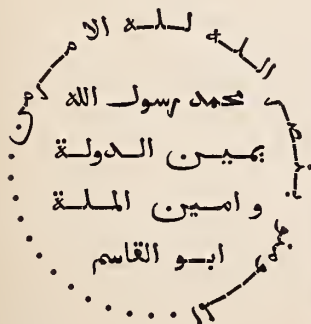 لله الامر من
بنصر الله
محمد رسول الله
يمين الدولة
و امين الملة
ابو القاسم